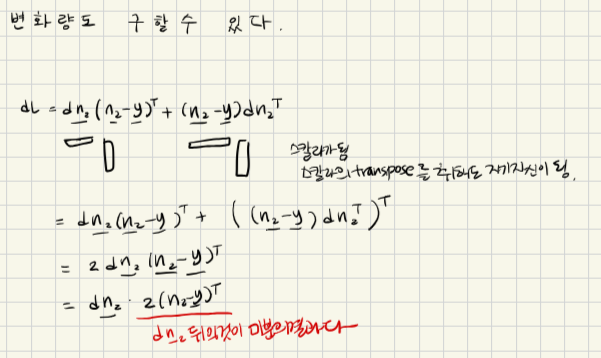 변화량도 구할 수 있다.
dL = dn₂(n₂-y)ᵀ + (n₂-y)dn₂ᵀ
스칼라가 됨
스칼라의 transpose를 취해도 자기자신이 됨.
= dn₂(n₂-y)ᵀ + ((n₂-y)dn₂ᵀ)ᵀ
= 2dn₂(n₂-y)ᵀ
= dn₂ · 2(n₂-y)ᵀ
dn₂ 뒤의것이 미분의결과다